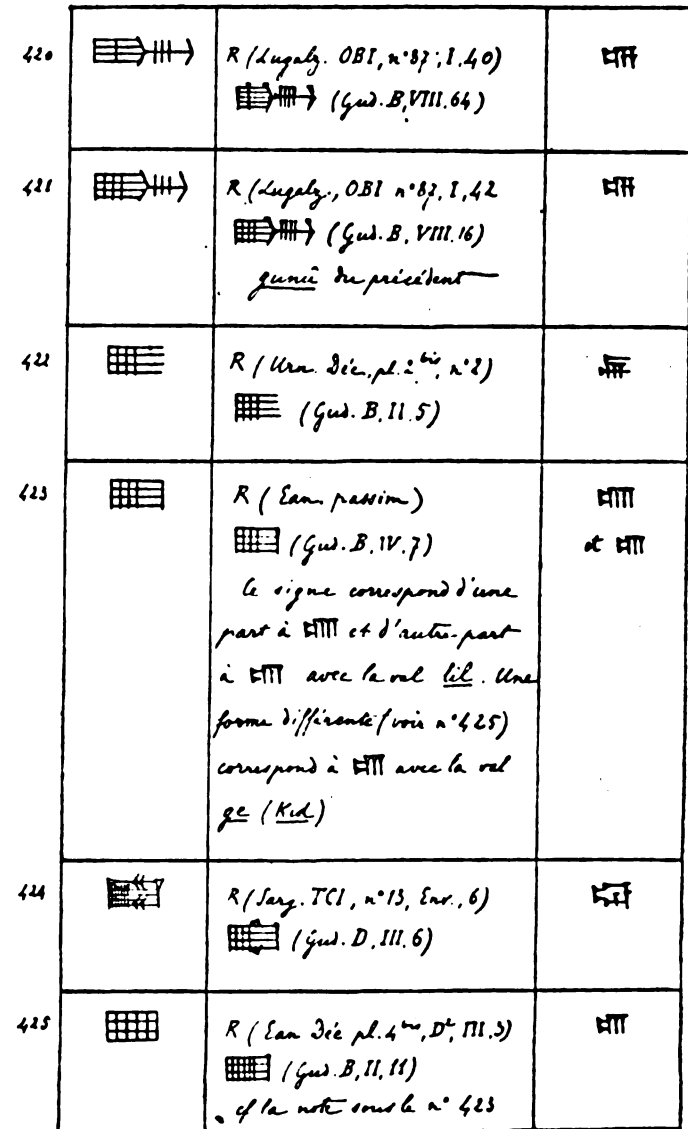 420 R (Lugalz. OBI, n° 87, I, 40)
(Gud. B, VIII. 64)
421 R (Lugalz., OBI n° 87, I, 42
(Gud. B, VIII. 16)
gunié du précédent
422 R (Urn. Déc. pl. 2 bis, n° 2)
(Gud. B, II. 5)
423 R (Ean. passim)
(Gud. B, IV. 7) et
Ce signe correspond d'une
part à et d'autre part
à avec la val lil. Une
forme différente (voir n° 425)
correspond à avec la val
ge (Kid)
424 R (Sarg. TCI, n° 13, Env., 6)
(Gud. D, III. 6)
425 R (Ean Déc pl. 4, III, 3)
(Gud. B, II, 11)
cf la note sous le n° 423